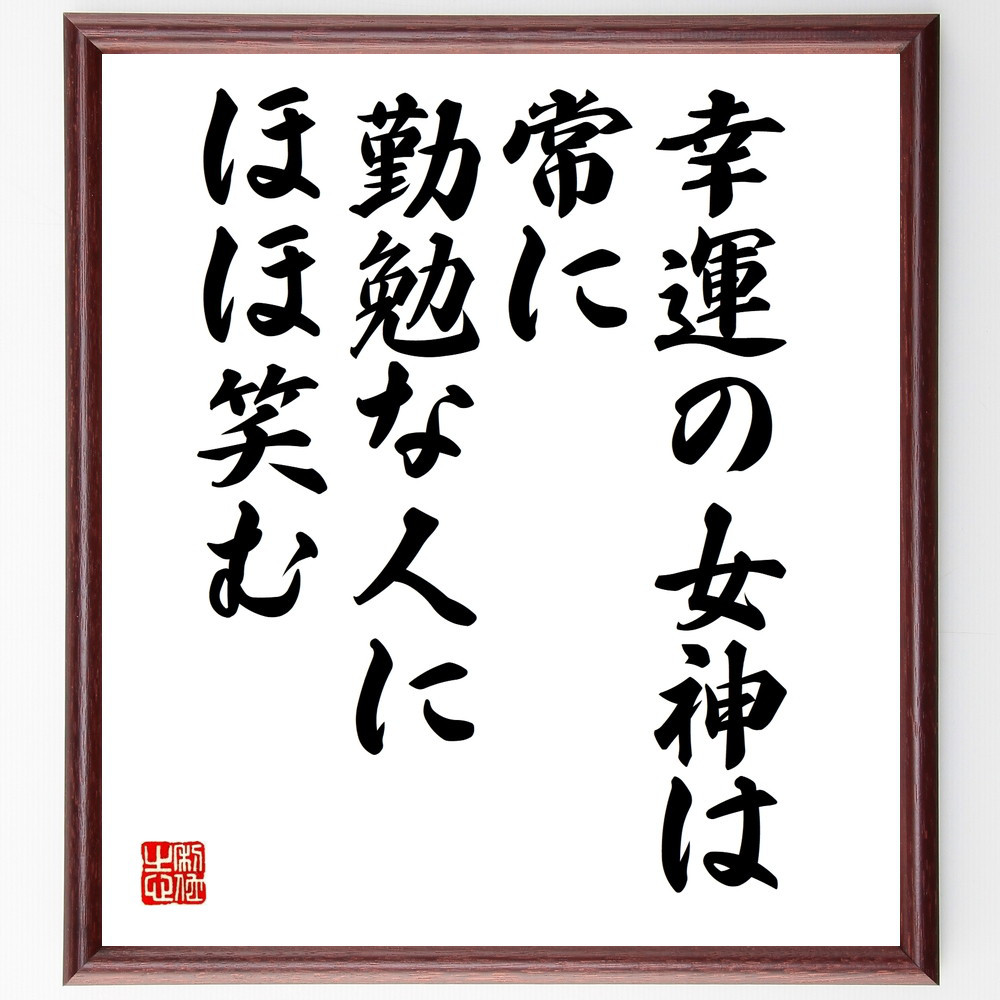 幸運の女神は
常に
勤勉な人に
ほほ笑む